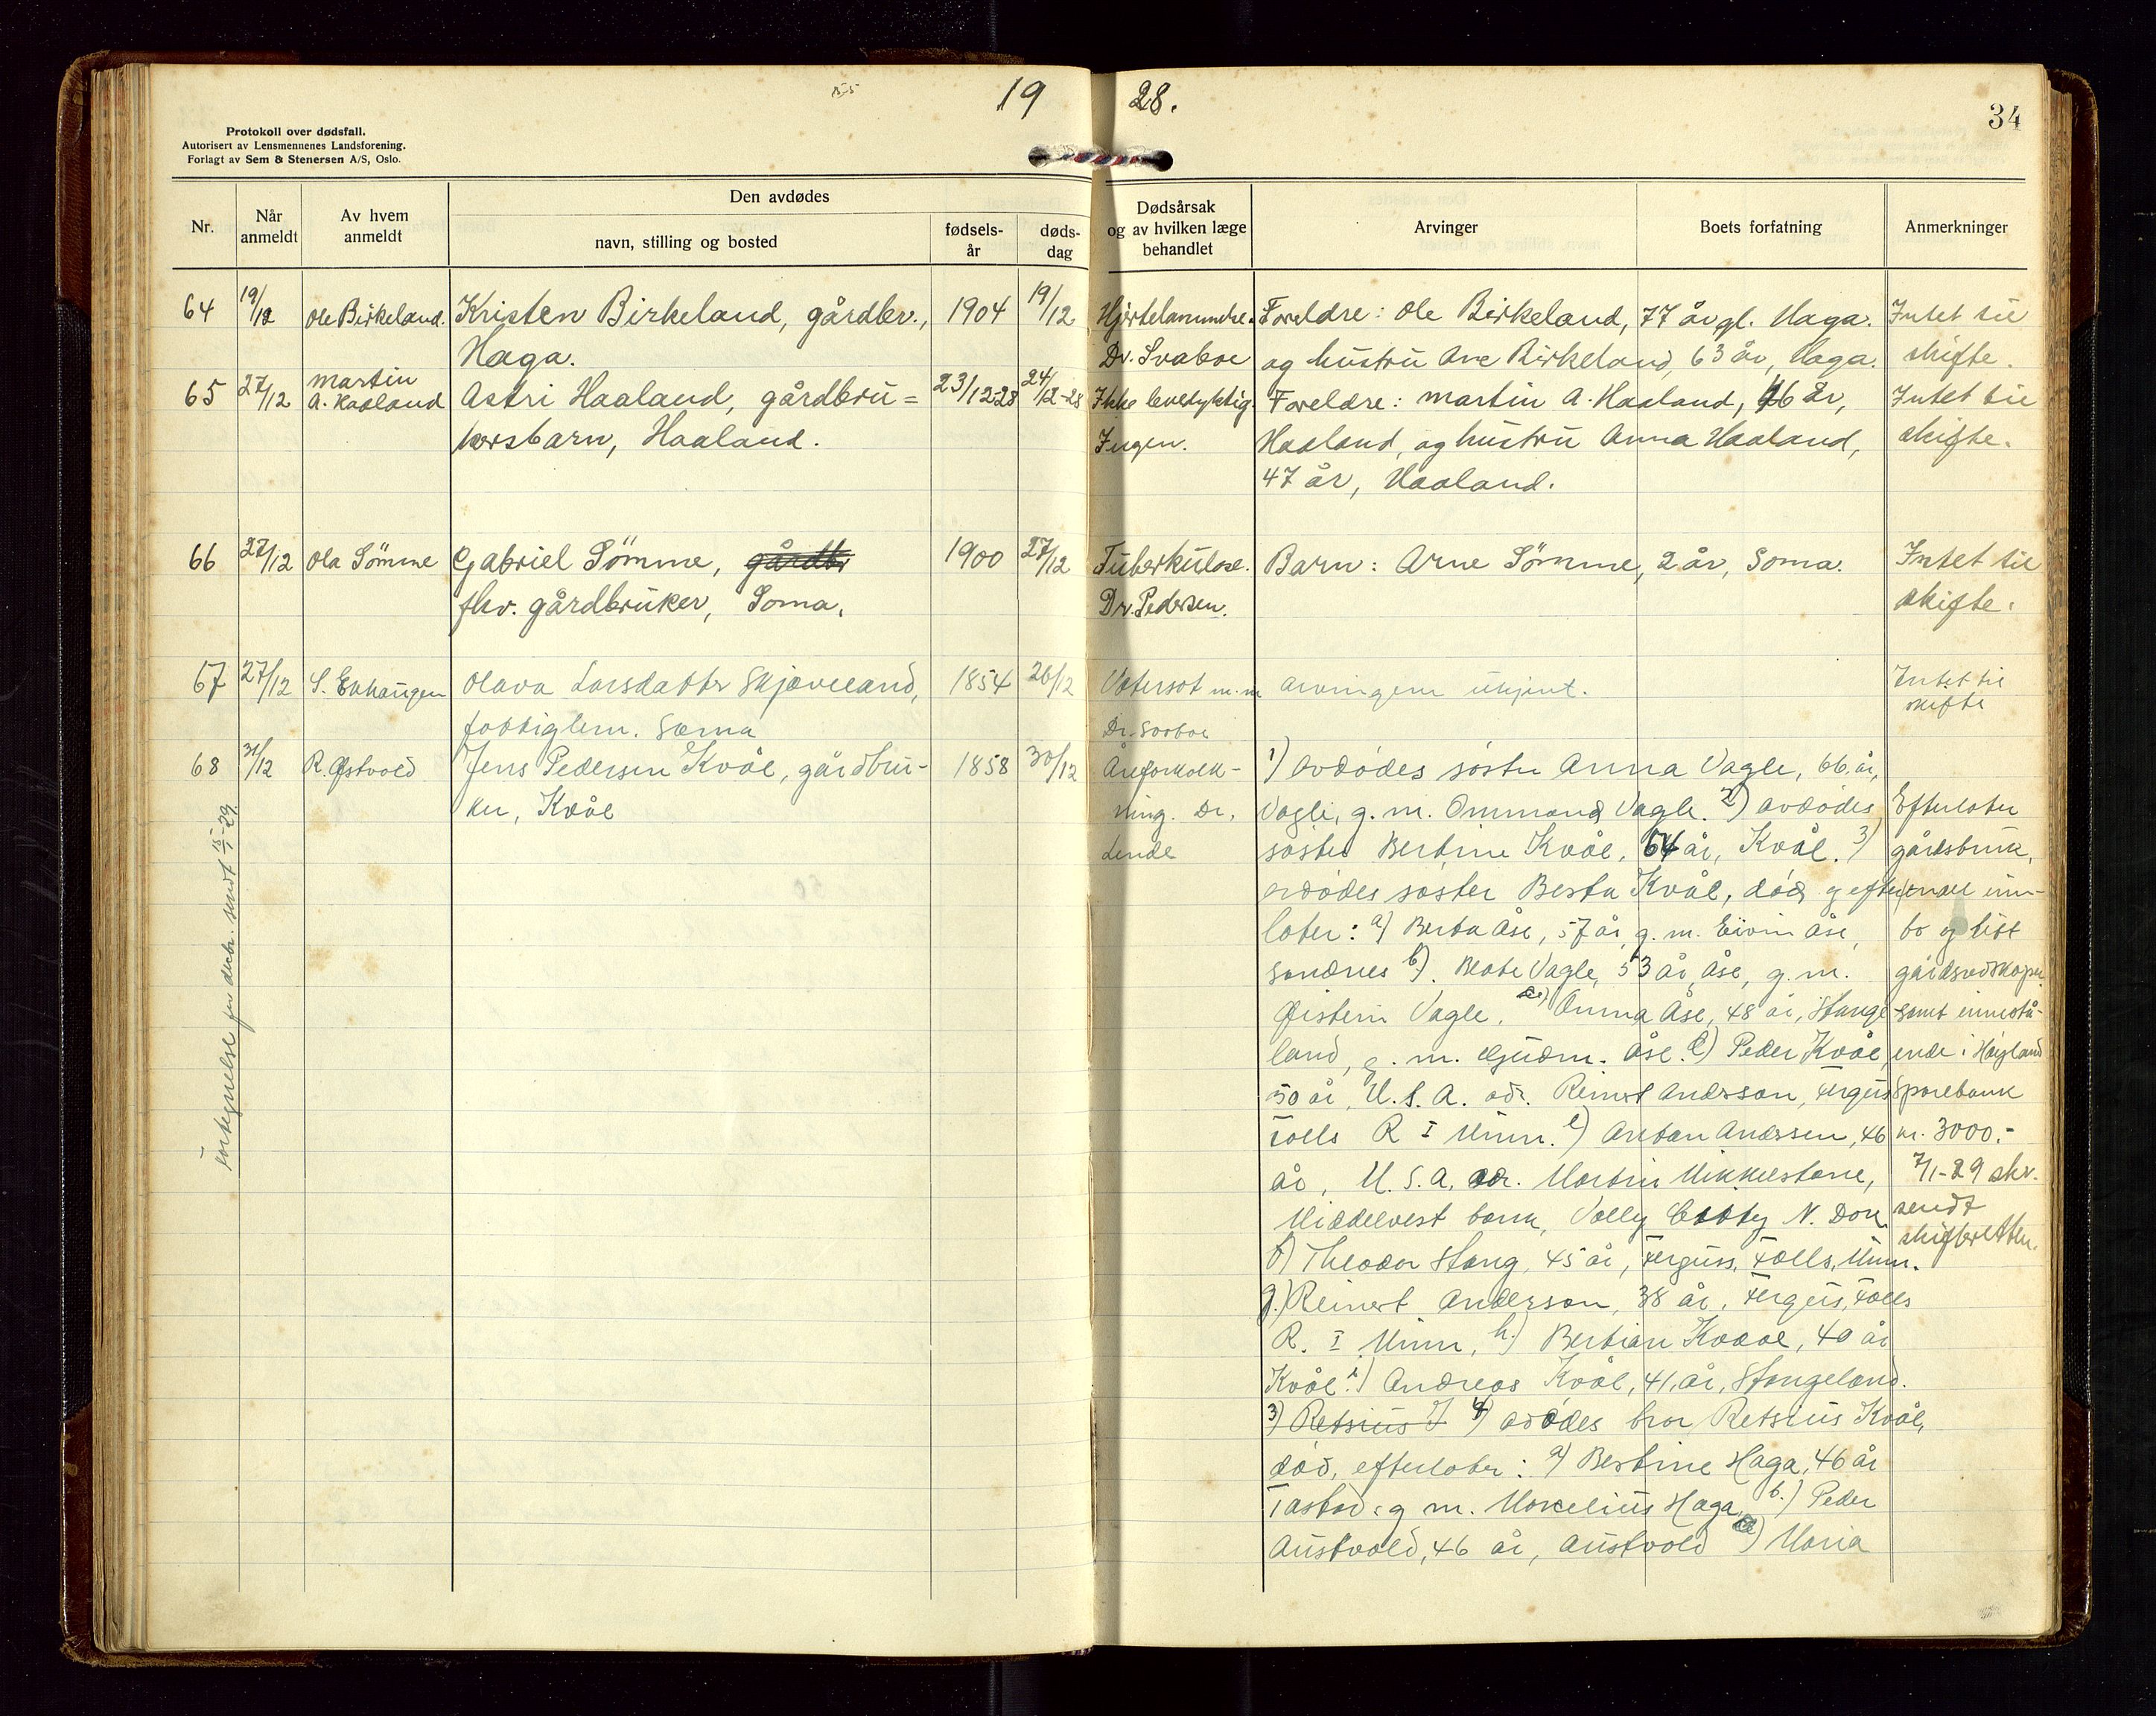 19 28.
34
Protokoll over dødsfall.
Autorisert av Lensmennenes Landsforening.
Forlagt av Sem & Stenersen A/S, Oslo.
Nr.
Når anmeldt
Av hvem anmeldt
Den avdødes
navn, stilling og bosted
fødsels-år
døds-dag
Dødsårsak og av hvilken læge behandlet
Arvinger
Boets forfatning
Anmerkninger
64 19/12 Ole Birkeland. Kristen Birkeland, gårdbr., 1904 19/12 Foreldre: Ole Birkeland, 77 år gl. Haga. Intet til
Haga. Dr. Svaboe og hustru Ane Birkeland, 63 år, Haga. skifte.
65 27/12 Martin A. Haaland Astri Haaland, gårdbru= 23/12 28 24/12-28 Ikke levedyktig. Foreldre: Martin A. Haaland, 46 år, Intet til
kersbarn, Haaland. Ingen. Haaland, og hustru Anna Haaland, skifte.
47 år, Haaland.
66 27/12 Ola Sömme Gabriel Sömme, gårdbr 1900 27/12 Tuberkulose. Barn: Arne Sömme, 2 år, Soma. Intet til
fhv. gårdbruker, Soma. Dr. Pedersen. skifte.
67 27/12 S. Olava Larsdatter Skjæveland, 1854 26/12 Vatersot m.m arvingene ukjent. Intet til
fattiglem. Soma Dr. skifte
68 31/12 R. Østvold Jens Pedersen Kvål, gårdbru- 1858 30/12 Åreforkalk- 1) avdødes søster Anna Vagle, 66 år,
ker, Kvål ning. Dr. Vagle, g. m. Ommond Vagle. 2) avdødes Efterlater
Lende søster Bertine Kvål, 64 år, Kvål. 3) gårdsbruk,
avdødes søster Berta Kvål, død og efter- inn-
later: a) Berta Åse, 57 år g. m. Eivin Åse, bo og litt
Sandnes b). Beate Vagle, 53 år, Åse, g. m. gårdsredskaper
Øistein Vagle. Anna Åse, 48 år, Stange- samt innestå-
land, g. m. Gudm. Åse. Peder Kvål, ende i Høyland
50 år, U.S.A. adr. Reinert Anderson, Fergus Sparebank
Falls R I Minn. e) Anton Andersen, 46 kr. 3000.-
år, U.S.A. adr. Martin 7/1-29 skr.
bank, N. Dak. sendt
f) Theodor Stang, 45 år, Fergus. Falls, Minn. skifteretten.
g.) Reinert Anderson, 38 år. Fergus, Falls
R. I Minn. h.) Bertian Kvaal, 40 år
Kvål. i) Andreas Kvål, 41 år, Stangeland.
3) Retsius J 4) avdødes bror Retsius Kvål,
død, efterlater: a) Bertine Haga, 46 år
Tastad. g m. Marcelius Haga, b.) Peder
Austvold, 46 år, Austvold Maria
Fortegnelse for decbr. sendt 15/1-29.